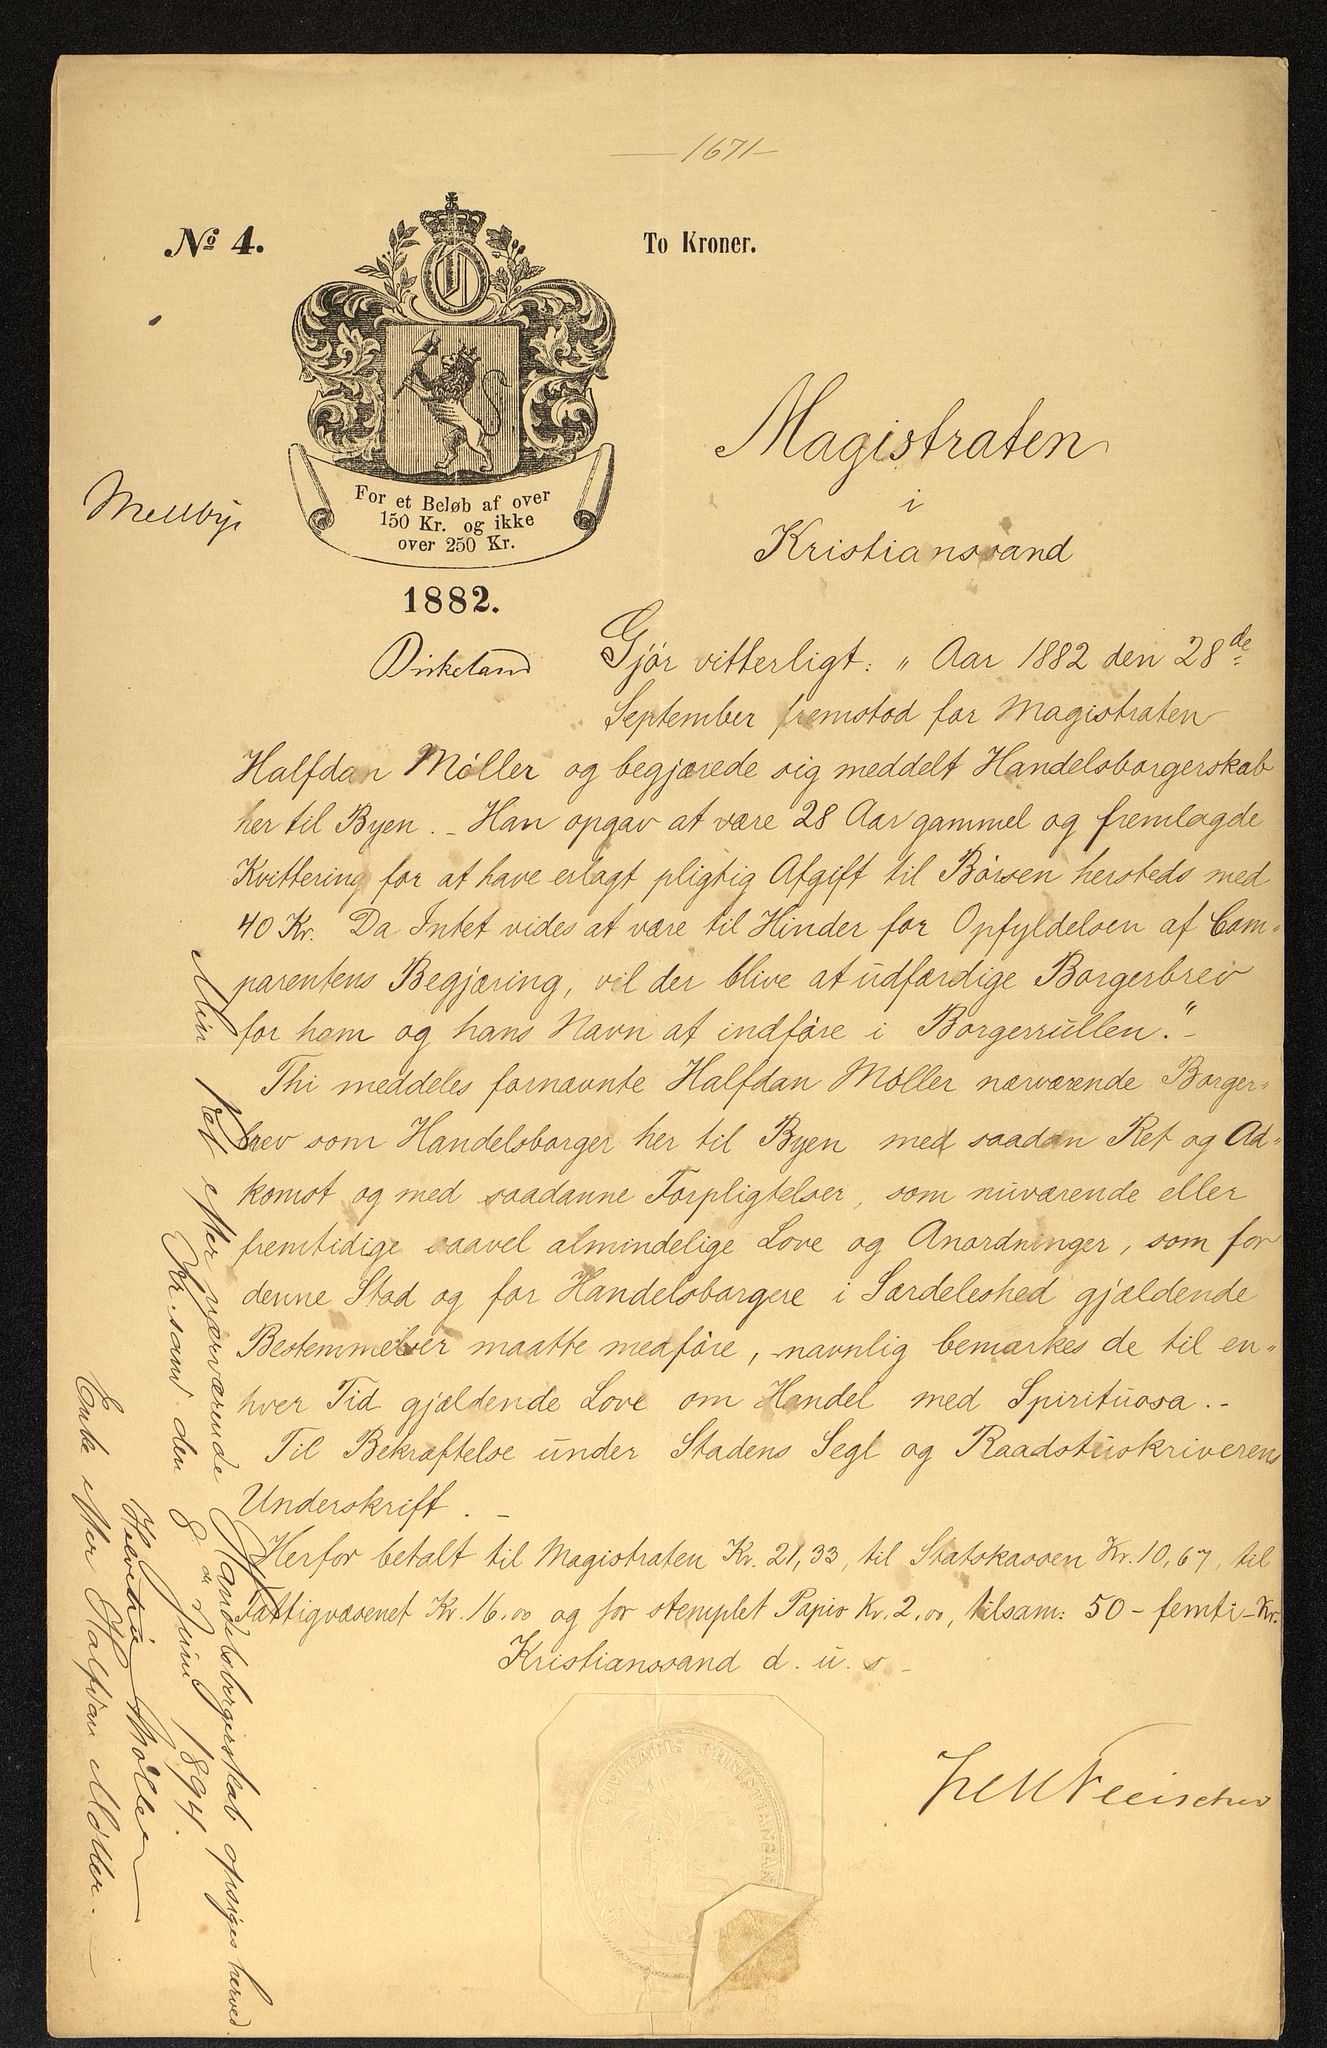 — 1671 —
No 4.
To Kroner.
For et Beløb af over
150 Kr. og ikke
over 250 Kr.
1882.
Mellbye
Birkeland
Magistraten
i
Kristianssand
Gjør vitterligt: „Aar 1882 den 28de
September fremstod for Magistraten
Halfdan Møller og begjærede sig meddelt Handelsborgerskab
her til Byen. – Han opgav at være 28 Aar gammel og fremlagde
Kvittering for at have erlagt pligtig Afgift til Børsen hersteds med
40 Kr. Da Intet vides at være til Hinder for Opfyldelsen af Com-
parentens Begjæring, vil der blive at udfærdige Borgerbrev
for ham og hans Navn at indføre i Borgerrullen." –
Thi meddeles fornævnte Halfdan Møller nærværende Borger-
brev som Handelsborger her til Byen med saadan Ret og Ad-
komst og med saadanne Forpligtelser, som nuværende eller
fremtidige saavel almindelige Love og Anordninger, som for
denne Stad og for Handelsborgere i Særdeleshed gjældende
Bestemmelser maatte medføre, navnlig bemærkes de til en-
hver Tid gjældende Love om Handel med Spirituosa. –
Til Bekræftelse under Stadens Segl og Raadstuskriverens
Underskrift. –
Herfor betalt til Magistraten Kr. 21,33, til Statskassen Kr. 10,67, til
Fattigvæsenet Kr. 16.00 og for stemplet Papir Kr. 2.00, tilsam: 50 – femti – Kr.
Kristianssand d. u. s. –
Fleischer
CIVITATIS CHRISTIANSAN
Min Ret efter nærværende Handelsborgerskab opsiges herved
Kr.sand den 8de Juni 1894.
Helvika Møller
Enke efter Halfdan Møller. –